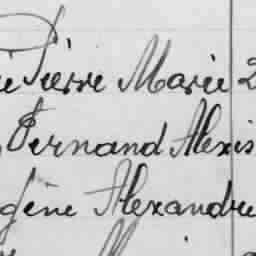 Pierre Marie 2
Fernand Alexis
gène Alexandre